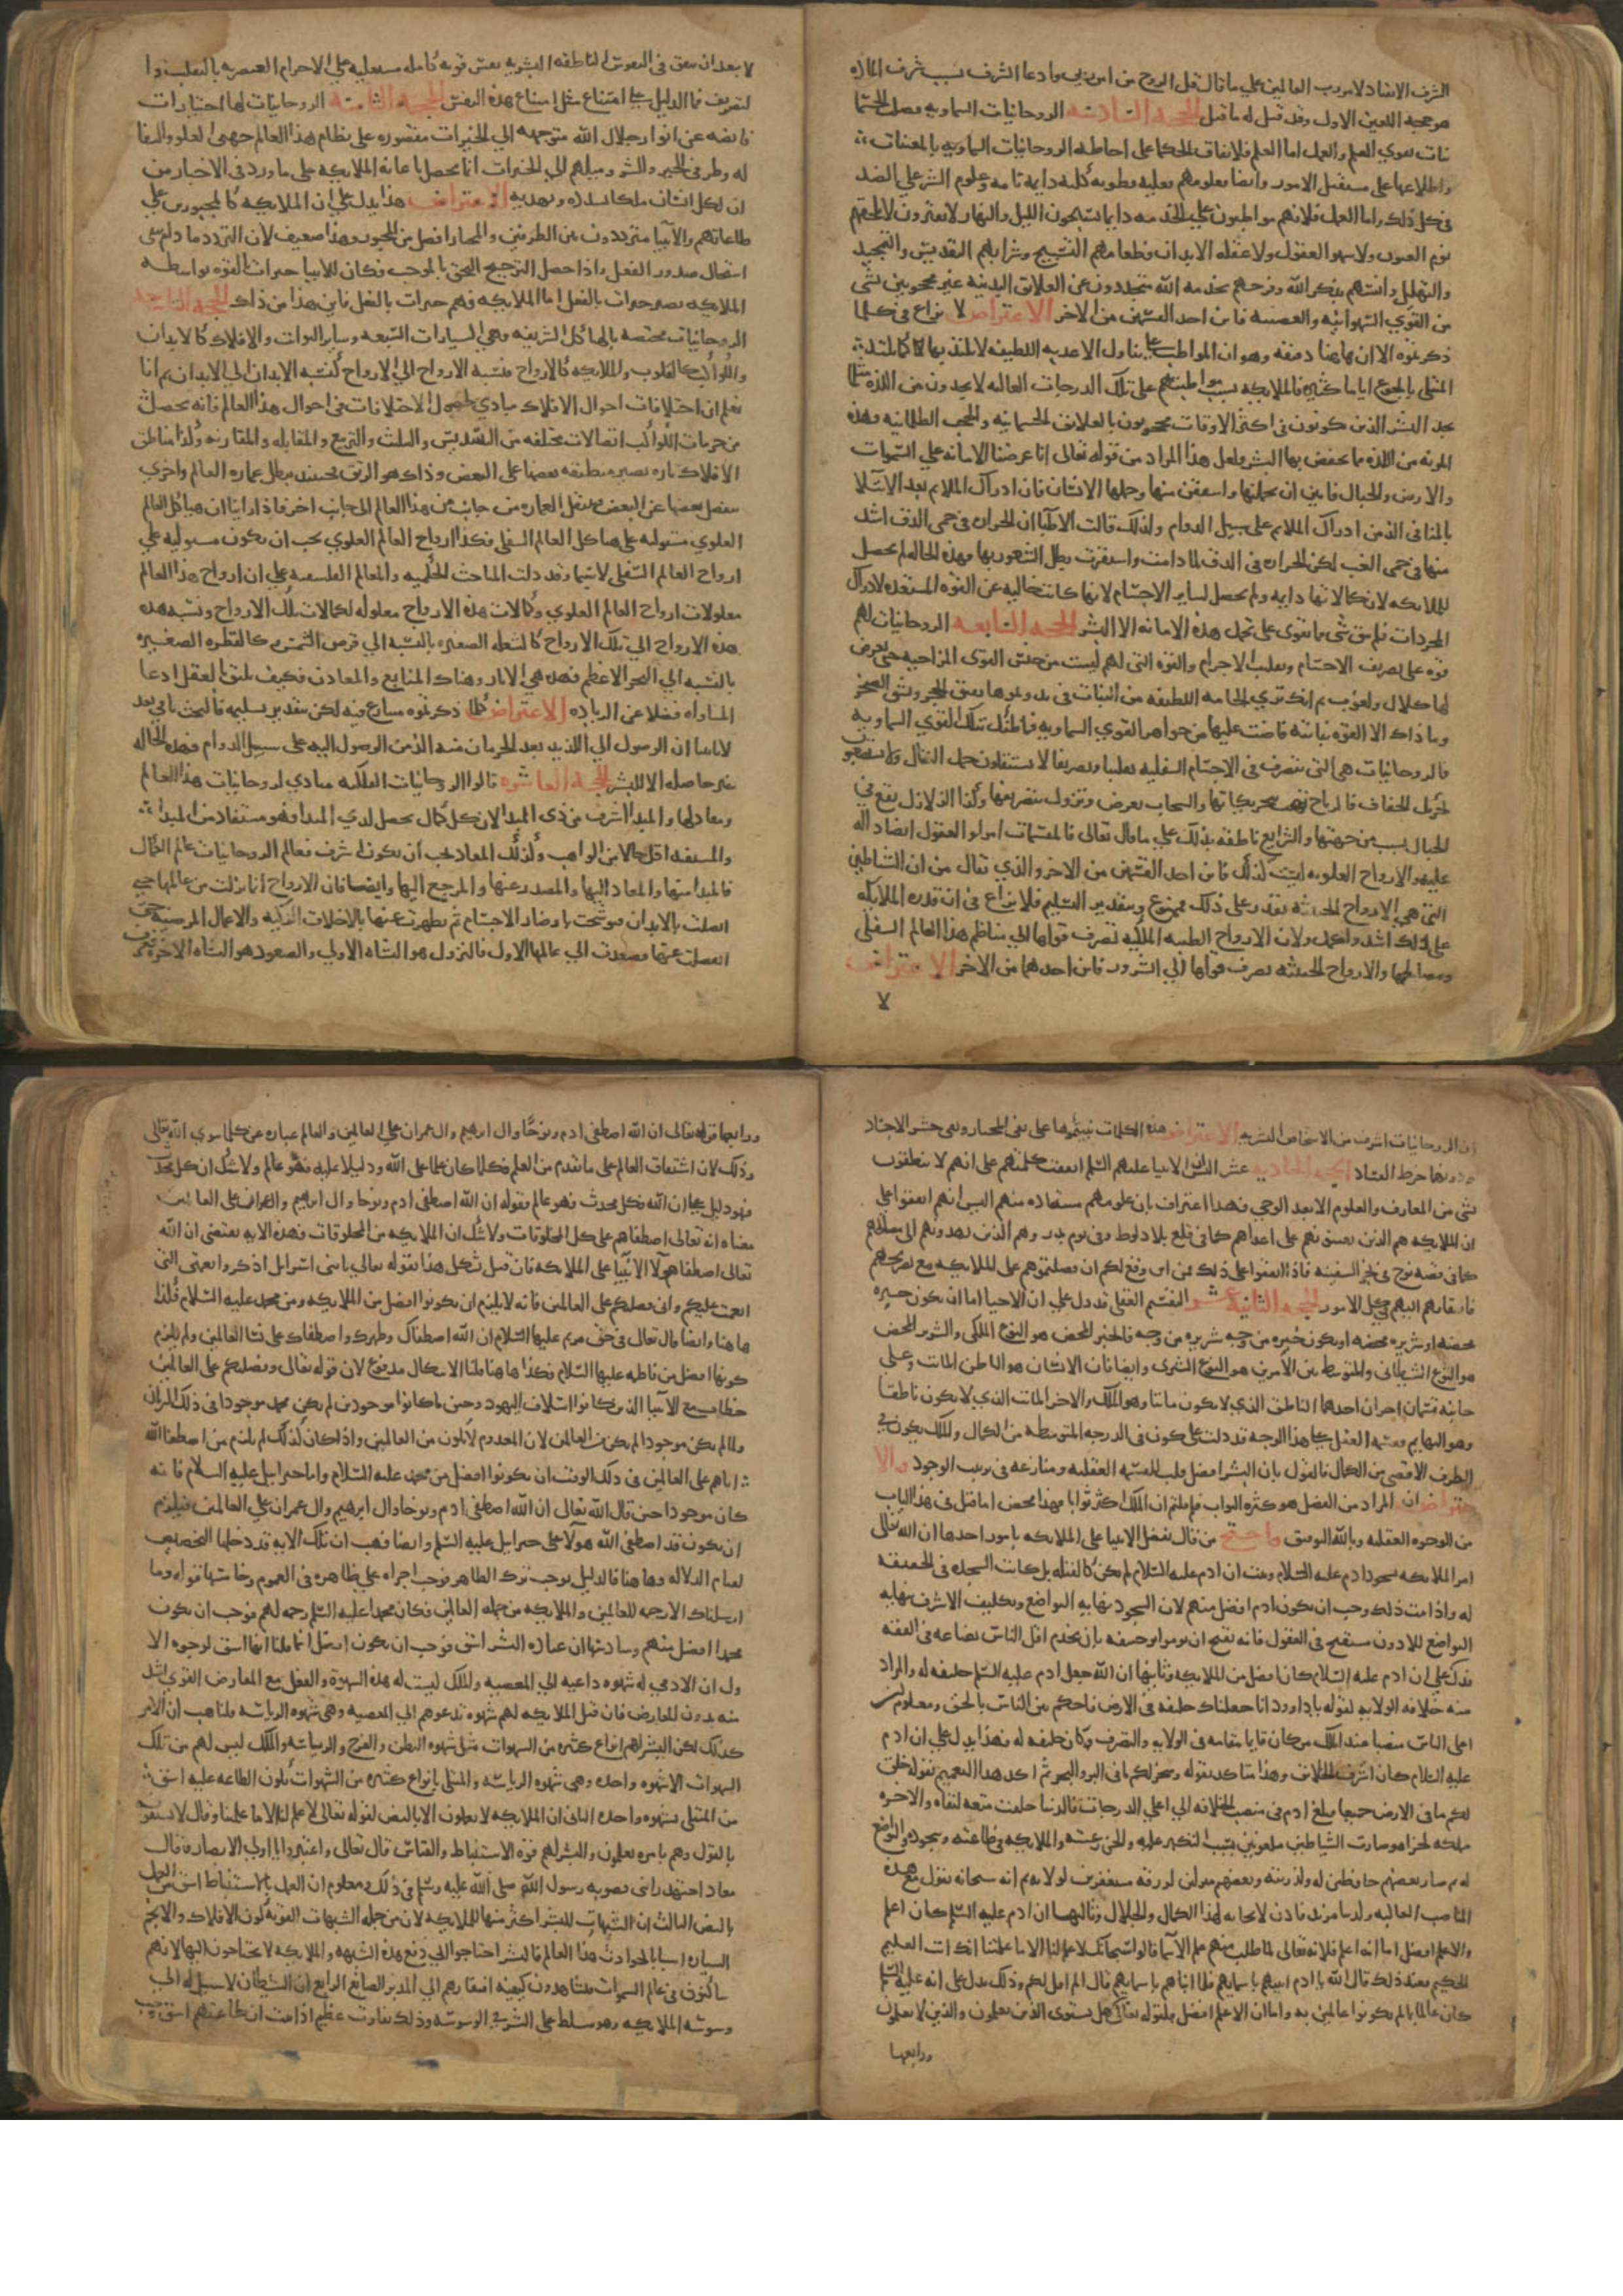 الشرف الانقياد لامر رب العالمين علي ما قال قل الروح من امر ربي وادعا الشرف بسبب شرف المادة
هو حجة اللعين الاول وقد قيل له ما قيل الحجة السادسة الروحانيات السماوية فضل الجسما
نيات بقوي العلم والعمل اما العلم فلاتفاق الحكما على احاطة الروحانيات السماوية بالمغيبات
واطلاعها على مستقبل الامور وايضا فعلومهم فعلية فطرية كلية دايمة تامة وعلوم البشر علي الضد
في كل ذلك واما العمل فلانهم مواظبون علي الخدمة دايما يسبحون الليل والنهار لا يفترون لا يلحقهم
نوم العيون ولا سهو العقول ولا غفلة الابدان فطعامهم التسبيح وشرابهم التقديس والتمجيد
والتهليل وانسهم بذكر الله وفرحهم بخدمة الله متجردون عن العلائق البدنية غير محجوبين بشي
من القوي الشهوانية والغضبية فاين احد القسمين من الاخر الاعتراض لا نزاع في كلما
ذكرتموه الا ان هاهنا دقيقة وهو ان المواظب على تناول الاغذية اللطيفة لا يلتذ بها كما يلتذ
المبتلى بالجوع اياما كثيرة فالملايكة بسبب مواظبتهم على تلك الدرجات العالية لا يجدون من اللذة مثل ما
يجد البشر الذين يكونون في اكثر الاوقات محجوبين بالعلائق الجسمانية والحجب الظلمانية وهذه
المزية من اللذة مما يختص بها البشر ولعل هذا المراد من قوله تعالى انا عرضنا الامانة علي السموات
والارض والجبال فابين ان يحملنها واشفقن منها وحملها الانسان فان ادراك الملايم بعد الابتلا
بالمنافي الذ من ادراك الملايم على سبيل الدوام ولذلك قالت الاطبا ان الحرارة في حمى الدق اشد
منها في حمى الغب لكن الحرارة في الدق لما دامت واستقرت بطل الشعور بها فهذه الحالة لم يحصل
للملايكة لان كمالاتها دايمة ولم يحصل لساير الاجسام لانها كانت خالية عن القوة المستعدة لادراك
المجردات فلم يبق شي مما يقوى على تحمل هذه الامانة الا البشر الحجة السابعة الروحانيات لهم
قوة على تصريف الاجسام وتقليب الاجرام والقوة التي لهم ليست من جنس القوى المزاجية حتى يعرض
لها كلال ولغوب ثم انك تري الخامة اللطيفة من النبات في بدو نموها يفتق الحجر ويشق الصخر
وما ذاك الا القوة نباتية فاضت عليها من جواهر القوي السماوية فما ظنك بتلك القوي السماوية
فالروحانيات هي التي تتصرف في الاجسام السفلية تقليبا وتصريفا لا يستثقلون حمل الثقال ولا يستصعبون
تحريك الخفاف فالرياح تهب بتحريكاتها والسحاب يعرض وتزول بتصريفها وكذا الزلازل تقع في
الجبال بسبب من جهتها والشرايع ناطقة بذلك علي ما قال تعالى فالمقسمات امرا والعقول ايضا دالة
عليه والارواح العلوية ليست كذلك فاين احد القسمين من الاخر والذي يقال من ان الشياطين
التي هي الارواح الخبيثة تقدر على ذلك فممنوع وبتقدير التسليم فلا نزاع في ان قدرة الملايكة
على ذلك اشد واكمل ولان الارواح الطيبة الملكية تصرف قواها الي مناظم هذا العالم السفلي
ومصالحها والارواح الخبيثة تصرف قواها الي الشرور فاين احدهما من الاخر الاعتراض
لا
لا يبعد ان يتفق في النفوس الناطقة البشرية نفس قوية كاملة مستعلية علي الاجرام العنصرية بالتقليب وا
لتصريف فما الدليل على امتناع مثل هذه النفس الحجة الثامنة الروحانيات لها اختيارات
فايضة عن انوار جلال الله متوجهة الي الخيرات مقصورة على نظام هذا العالم
له وطرفي الخير والشر وميلهم الي الخيرات انما يحصل باعانة الملايكة على ما ورد في الاخبار من
ان لكل انسان ملكا يسدده ويهديه الاعتراض هذا يدل على ان الملايكة كالمجبورين على
طاعاتهم والانبيا مترددون بين الطرفين والمختار افضل من المجبور وهذا ضعيف لان التردد ما دام يبقى
استحال صدور الفعل واذا حصل الترجيح التحق بالموجب فكان للانبيا خيرات بالقوة بواسطة
الملايكة تصير خيرات بالفعل اما الملايكة فهم خيرات بالفعل فاين هذا من ذاك الحجة التاسعة
الروحانيات مختصة بالهياكل الشريفة وهي السيارات السبعة وساير الثوابت والافلاك كالابدان
والكواكب كالقلوب والملايكة كالارواح فنسبة الارواح الي الارواح كنسبة الابدان الي الابدان ثم انا
نعلم ان اختلافات احوال الافلاك مبادي لحصول الاختلافات في احوال هذا العالم فانه يحصل
من حركات الكواكب اتصالات مختلفة من التسديس والتثليث والتربيع والمقابلة والمقارنة وكذا مناطق
الافلاك تارة تصير منطبقة بعضها على البعض وذاك هو الرتق فحينئذ يبطل عمارة العالم واخري
ينفصل بعضها عن البعض فتنتقل العمارة من جانب من هذا العالم الى جانب اخر فاذا راينا ان هياكل العالم
العلوي مستولية على هياكل العالم السفلي فكذا ارواح العالم العلوي يجب ان يكون مستولية علي
ارواح العالم السفلي لا سيما وقد دلت المباحث الحكمية والمعالم الفلسفية علي ان ارواح هذا العالم
معلولات ارواح العالم العلوي وكمالات هذه الارواح معلولة لكمالات تلك الارواح ونسبة هذه
هذه الارواح الي تلك الارواح كالشعلة الصغيرة بالنسبة الي قرص الشمس وكالقطرة الصغيرة
بالنسبة الي البحر الاعظم فهذه هي الاثار وهناك المنابع والمعادن فكيف يليق بالعقل ادعا
المساواة فضلا عن الزيادة الاعتراض كلما ذكرتموه منازع فيه لكن بتقدير تسليمه فالبحث باق بعد
لانا بينا ان الوصول الي اللذيذ بعد الحرمان منه الذ من الوصول اليه على سبيل الدوام فهذه الحالة
غير حاصلة الا للبشر الحجة العاشرة قالوا الروحانيات الفلكية مبادي لروحانيات هذا العالم
ومعادلها والمبدا اشرف من ذي المبدا لان كل كمال يحصل لذي المبدا فهو مستفاد من المبدا
والمستفيد اقل حالا من الواهب وكذلك المعاد يجب ان يكون اشرف فعالم الروحانيات عالم الكمال
فالمبدا منها والمعاد اليها والمصدر عنها والمرجع اليها وايضا فان الارواح انما نزلت من عالمها حتي
اتصلت بالابدان فتوسخت باوضار الاجسام ثم تطهرت عنها بالاخلاق الزكية والاعمال المرضية حتى
انفصلت عنها فصعدت الي عالمها الاول فالنزول هو النشاة الاولي والصعود هو النشاة الاخرة فعرف
ان الروحانيات اشرف من الاشخاص البشرية الاعتراض هذه الكلمات بنيتموها على نفي المختار ونفي حشر الاجساد
ودونهما خرط القتاد الحجة الحادية عشر ان الانبيا عليهم السلم اتفقت كلمتهم على انهم لا ينطقون
بشي من المعارف والعلوم الا بعد الوحي فهذا اعتراف بان علومهم مستفادة منهم اليس انهم اتفقوا على
ان الملايكة هم الذين يعينونهم على اعدائهم كما في قلع بلاد لوط وفي يوم بدر وهم الذين يهدونهم الى مصالحهم
كما في قصة نوح في نجر السفينة فاذا اتفقوا على ذلك فمن اين وقع لكم ان فضلتموهم على الملايكة مع تصريحهم
بافتقارهم اليهم في كل الامور الحجة الثانية عشر القسم العقلي قد دل على ان الاحيا اما ان يكون خيرة
محضة او شريرة محضة او يكون خيرة من وجه شريرة من وجه فالخير المحض هو النوع الملكي والشرير المحض
هو النوع الشيطاني والمتوسط بين الامرين هو النوع البشري وايضا فان الانسان هو الناطق المايت وعلى
جانبيه قسمان اخران احدهما الناطق الذي لا يكون مايتا وهو الملك والاخر المايت الذي لا يكون ناطقا
وهو البهايم فقسمة العقل على هذا الوجه قد دلت على كون في الدرجة المتوسطة من الكمال والملك يكون في
الطرف الاقصى من الكمال فالقول بان البشر افضل قلب للقسمة العقلية ومنازعة في ترتيب الوجود والا
عتراض ان المراد من الفضل هو كثرة الثواب فلم قلتم ان الملك اكثر ثوابا فهذا محض اما قيل في هذا الباب
من الوجوه العقلية وبالله التوفيق واحتج من قال بفضل الانبيا على الملايكة بامور احدها ان الله تعالى
امر الملايكة بسجود ادم عليه السلام وثبت ان ادم عليه السلام لم يكن كالقبلة بل كانت السجدة في الحقيقة
له واذا ثبت ذلك وجب ان يكون ادم افضل منهم لان السجود نهاية التواضع وتكليف الاشرف بنهاية
التواضع للادون مستقبح في العقول فانه يقبح ان يومر ابو حنيفة بان يخدم اقل الناس بضاعة في الفقه
فدل على ان ادم عليه السلام كان افضل من الملايكة وثانيها ان الله جعل ادم عليه السلم خليفة له والمراد
منه خلافة الولاية لقوله يا داوود انا جعلناك خليفة في الارض فاحكم بين الناس بالحق ومعلوم ان
اعلى الناس منصبا عند الملك من كان قايما مقامه في الولاية والتصرف وكان خليفة له فهذا يدل علي ان ادم
عليه السلام كان اشرف الخلائق وهذا متاكد بقوله وسخر لكم ما في البر والبحر ثم اكد هذا التعميم بقوله خلق
لكم ما في الارض جميعا فبلغ ادم في منصب الخلافة الي اعلي الدرجات فالدنيا خلقت متعة لبقاه والاخرة
مملكة لجزاه وصارت الشياطين ملعونين بسبب التكبر عليه والجن رعيته والملايكة في طاعته وسجوده والتواضع
له ثم صار بعضهم حافظين له ولذريته وبعضهم منزلين لرزقه وبعضهم مستغفرين لزلاته ثم انه سبحانه يقول مع هذه
المناصب العالية ولدينا مزيد فاذن لا نهاية لهذا الكمال والجلال وثالثها ان ادم عليه السلم كان اعلم
والاعلم افضل اما انه اعلم فلانه تعالى لما طلب منهم علم الاسما قالوا سبحانك لا علم لنا الا ما علمتنا انك انت العليم
الحكيم فعند ذلك قال الله يا ادم انبيهم باسمايهم فلما انباهم باسمايهم قال الم اقل لكم وذلك يدل على انه عليه السلم
كان عالما بما لم يكونوا عالمين به واما ان الاعلم افضل فلقوله تعالى هل يستوي الذين يعلمون والذين لا يعلمون
ورابعها
ورابعها قوله تعالى ان الله اصطفى ادم ونوحا وال ابرهيم وال عمران علي العالمين والعالم عبارة عن كلما سوي الله تعالى
وذلك لان اشتقاق العالم على ما تقدم من العلم فكلما كان علما على الله ودليلا عليه فهو عالم ولا شك ان كل محدث
فهو دليل على الله فكل محدث فهو عالم فقوله ان الله اصطفى ادم ونوحا وال ابراهيم وال عمران على العالمين
معناه انه تعالى اصطفاهم على كل المخلوقات ولا شك ان الملايكة من المخلوقات فهذه الاية يقتضي ان الله
تعالى اصطفا هولا الانبيا على الملايكة فان قيل يشكل هذا بقوله تعالي يا بني اسرايل اذكروا نعمتي التي
انعمت عليكم واني فضلتكم على العالمين فانه لا يلزم ان يكونوا افضل من الملايكة ومن محمد عليه السلام فكذا
ها هنا وايضا قال تعالى في حق مريم عليها السلام ان الله اصطفاك وطهرك واصطفاك على نسا العالمين ولم يلزم
كونها افضل من فاطمة عليها السلام فكذا ها هنا قلنا الاشكال مدفوع لان قوله تعالى وفضلتكم على العالمين
خطاب مع الانبيا الذين كانوا اسلاف اليهود وحين ما كانوا موجودين لم يكن محمد موجودا في ذلك الزمان
ولما لم يكن موجودا لم يكن من العالمين لان المعدوم لا يكون من العالمين واذا كان كذلك لم يلزم من اصطفا الله
اياهم على العالمين في ذلك الوقت ان يكونوا افضل من محمد عليه السلام واما جبرايل عليه السلام فانه
كان موجودا حين قال الله تعالى ان الله اصطفى ادم ونوحا وال ابرهيم وال عمران علي العالمين فيلزم
ان يكون قد اصطفى الله هولا على جبرايل عليه السلم وايضا فهب ان تلك الاية قد دخلها التخصيص
لقيام الدلالة وها هنا فلا دليل يوجب ترك الظاهر فوجب اجراه علي ظاهره في العموم وخامسها قوله وما
ارسلناك الا رحمة للعالمين والملايكة من جملة العالمين فكان محمدا عليه السلم رحمة لهم فوجب ان يكون
محمدا افضل منهم وسادسها ان عبادة البشر اشق فوجب ان يكون افضل انما قلنا انها اشق لوجوه الا
ول ان الادمي له شهوة داعية الي المعصية والملك ليست له هذه الشهوة والفعل مع المعارض القوي اشد
منه بدون المعارض فان قيل الملايكة لهم شهوة تدعوهم الي المعصية وهي شهوة الرياسة قلنا هب ان الامر
كذلك لكن البشر لهم انواع كثيرة من الشهوات مثل شهوة البطن والفرج والرياسة والملك ليس لهم من تلك
الشهوات الا شهوة واحدة وهي شهوة الرياسة والمبتلى بانواع كثيرة من الشهوات يكون الطاعة عليه اشق
من المبتلى بشهوة واحدة الثاني ان الملايكة لا يعملون الا بالنص لقوله تعالى لا علم لنا الا ما علمتنا وقال لا يسبقونه
بالقول وهم بامره يعملون والبشر لهم قوة الاستنباط والقياس قال تعالى واعتبروا يا اولي الابصار وقال
معاذ اجتهد رايي فصوبه رسول الله صلى الله عليه وسلم في ذلك ومعلوم ان العمل بالاستنباط اشق من العمل
بالنص الثالث ان الشبهات للبشر اكثر منها للملايكة لان من جملة الشبهات القوية كون الافلاك والانجم
السيارة اسبابا لحوادث هذا العالم فالبشر احتاجوا الي دفع هذه الشبهة والملايكة لا يحتاجون اليها لانهم
ساكنون في عالم السموات فيشاهدون كيفية افتقارهم الي المدبر الصانع الرابع ان الشيطان لا سبيل له الي
وسوسة الملايكة وهو مسلط على البشر في الوسوسة وذلك تفاوت عظيم اذا ثبت ان طاعتهم اشق فيجب